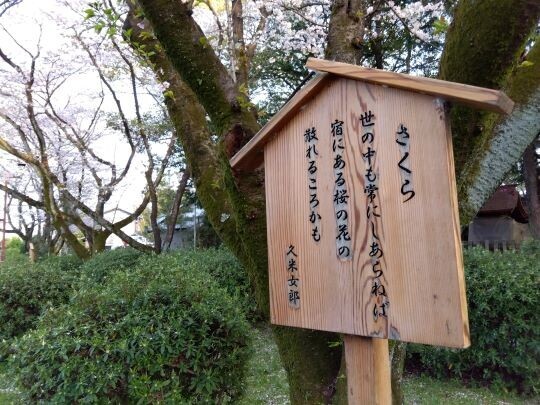 さくら
世の中も常にしあらねば
宿にある桜の花の
散れるころかも
久米女郎